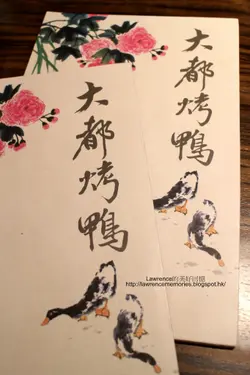 大都烤鴨
大都烤鴨
Lawrence的美好回憶
http://lawrencememories.blogspot.hk/